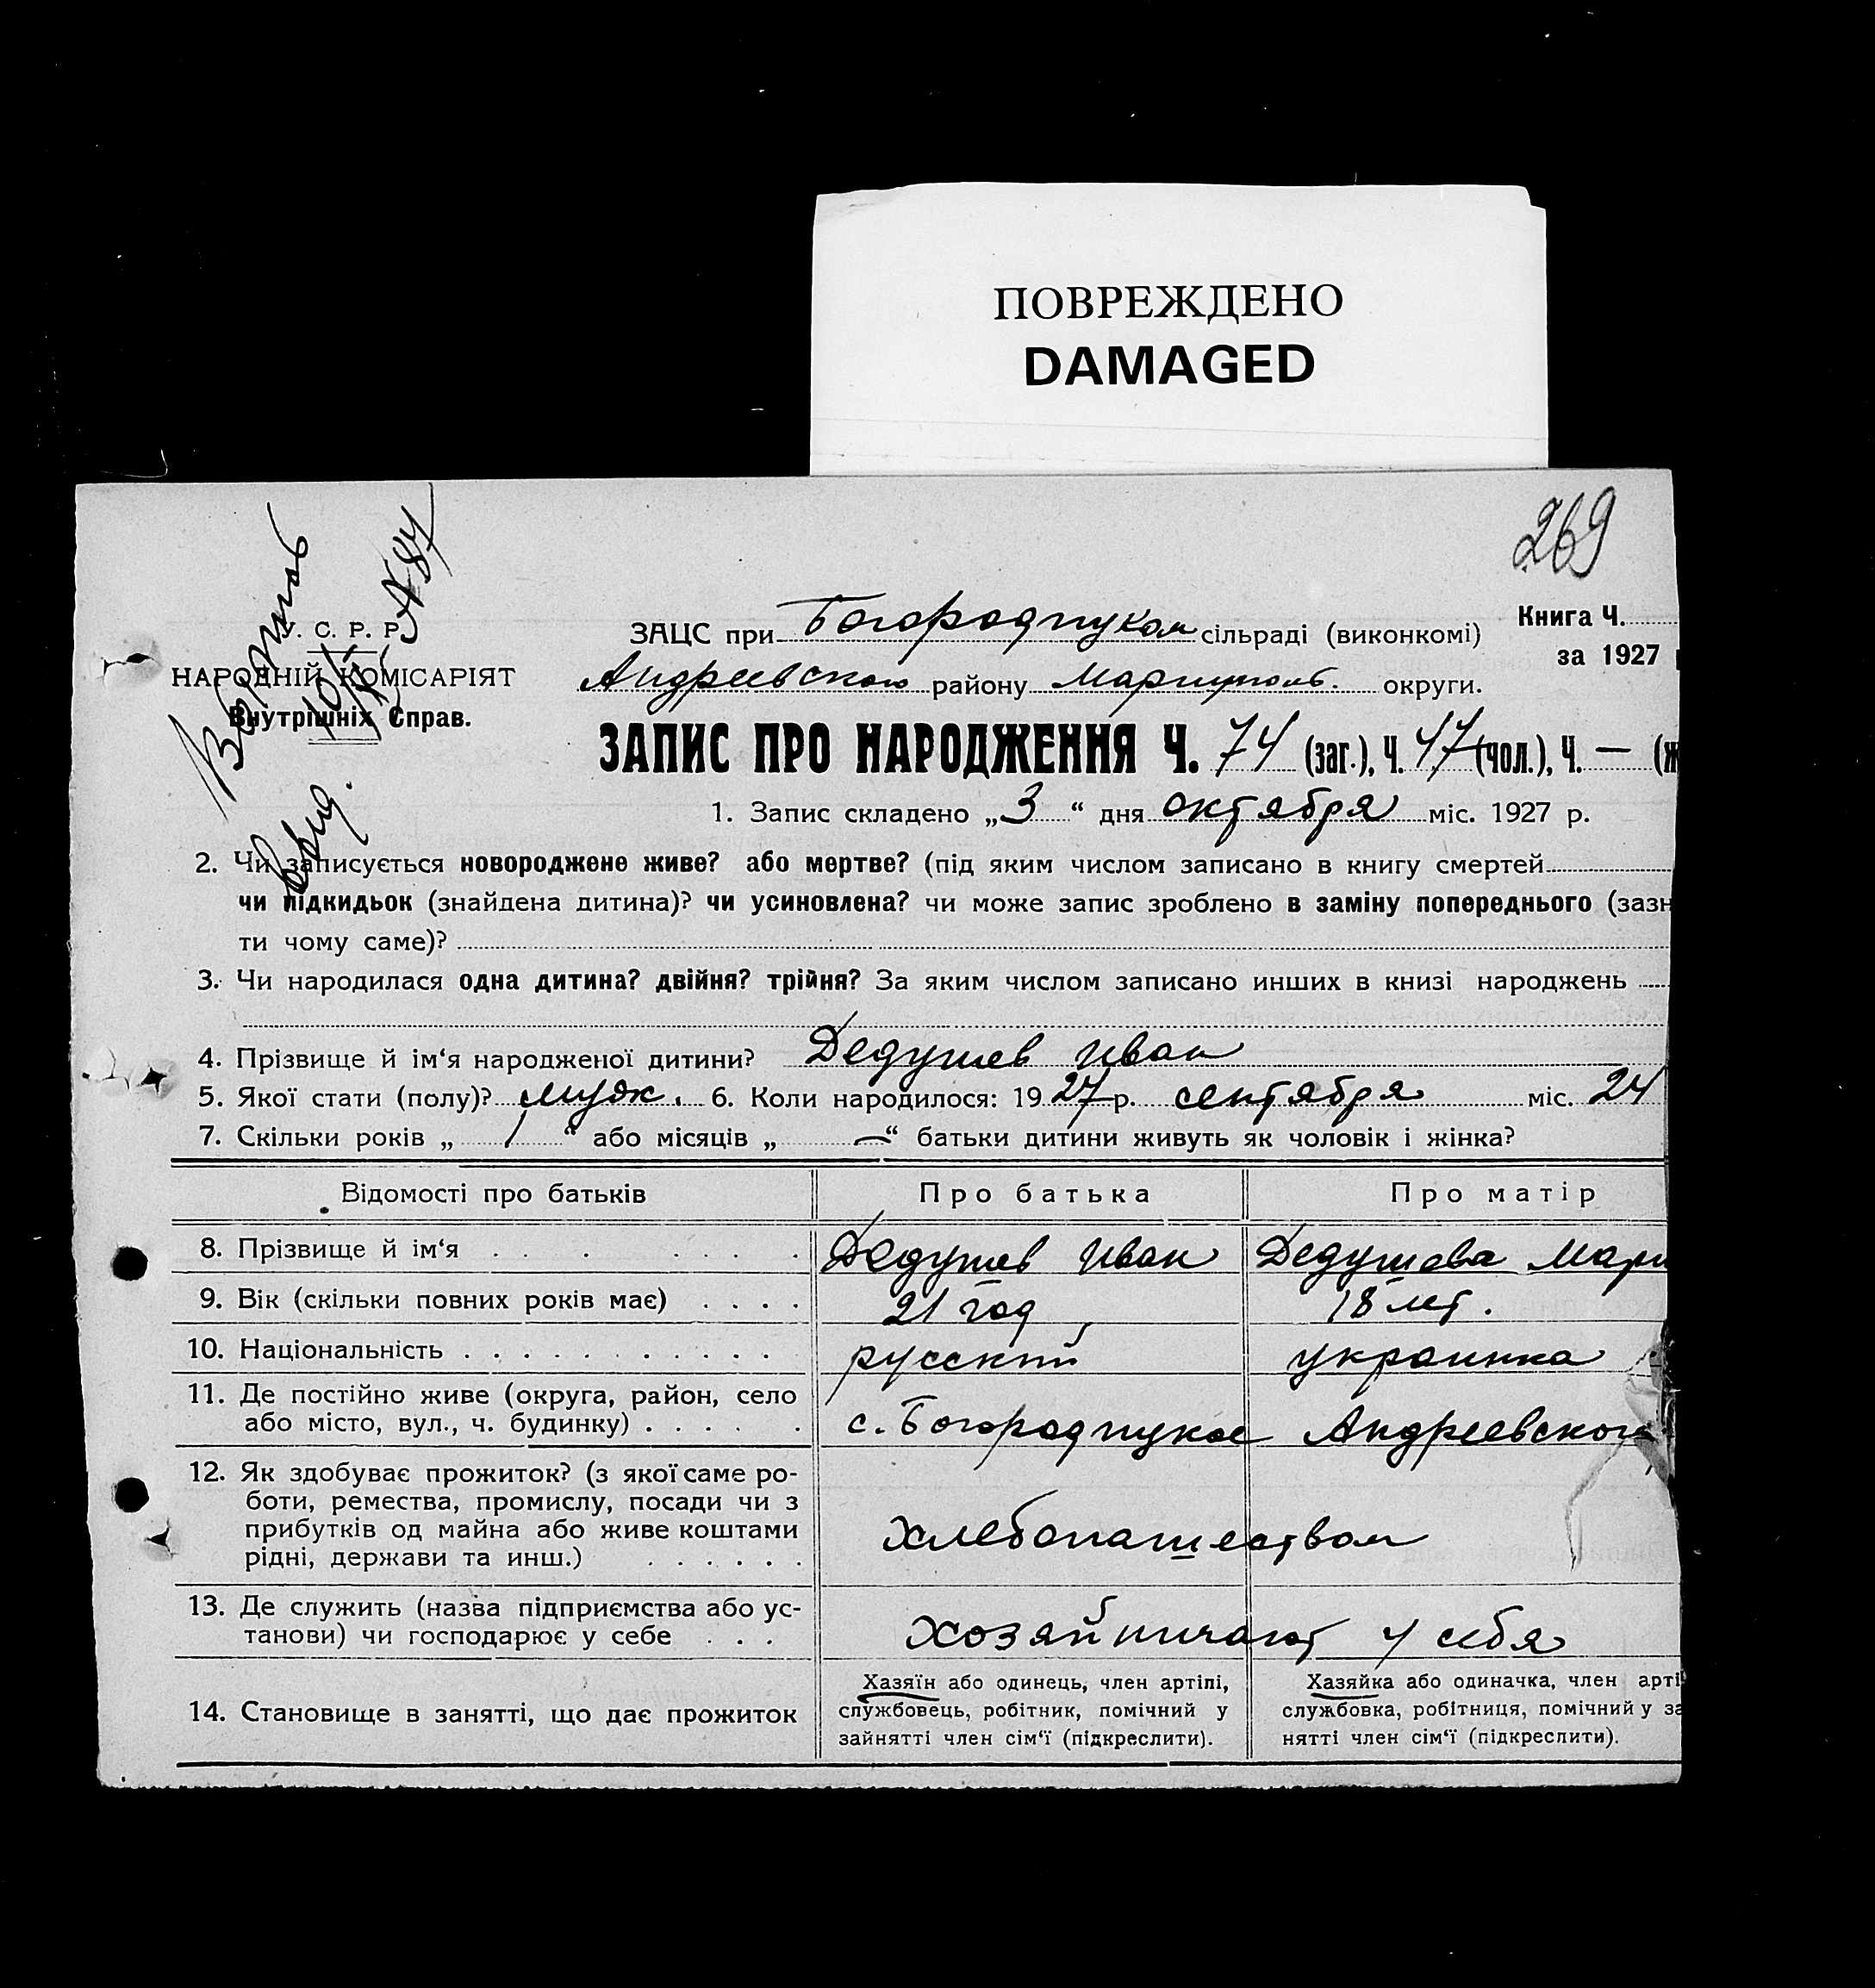 ПОВРЕЖДЕНО
DAMAGED
269
У. С. Р. Р.
НАРОДНІЙ КОМІСАРІЯТ
Внутрішніх Справ.
ЗАЦС при сільраді (виконкомі)
Книга Ч.
за 1927
Андреевского району Мариуполь. округи.
ЗАПИС ПРО НАРОДЖЕННЯ Ч. 74 (заг.), Ч. 47 (чол.), Ч. — (ж
1. Запис складено „3“ дня октября міс. 1927 р.
2. Чи записується новороджене живе? або мертве? (під яким числом записано в книгу смертей
чи підкидьок (знайдена дитина)? чи усиновлена? чи може запис зроблено в заміну попереднього (зазн
ти чому саме)?
3. Чи народилася одна дитина? двійня? трійня? За яким числом записано инших в книзі народжень
4. Прізвище й ім‘я народженої дитини? Дедушев Иван
5. Якої стати (полу)? мужс. 6. Коли народилося: 1927 р. сентября міс. 24
7. Скільки років „1“ або місяців „—“ батьки дитини живуть як чоловік і жінка?
Відомості про батьків Про батька Про матір
8. Прізвище й ім‘я Дедушев Иван Дедушева Мари
9. Вік (скільки повних років має) 21 год 18 лет.
10. Національність русский украинка
11. Де постійно живе (округа, район, село
або місто, вул., ч. будинку) с. Андреевского
12. Як здобуває прожиток? (з якої саме ро-
боти, ремества, промислу, посади чи з
прибутків од майна або живе коштами
рідні, держави та инш.)
хлебопашеством
13. Де служить (назва підприємства або ус-
танови) чи господарює у себе
хозяйничают у себя
14. Становище в занятті, що дає прожиток
Хазяїн або одинець, член артілі,
службовець, робітник, помічний у
зайнятті член сім‘ї (підкреслити).
Хазяйка або одиначка, член арті
службовка, робітниця, помічний у за
нятті член сім‘ї (підкреслити).